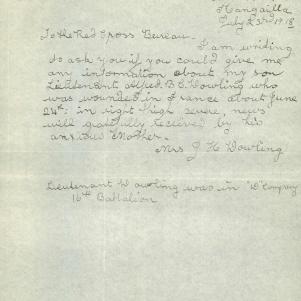 Hangailla
July 23rd 1918
To the Red Cross Bureau.
I am writing
to ask you if you could give me
any information about my son
Lieutenant Alfred. B. C. Dowling who
was wounded in France about June
24th: in right thigh severe, news
will gratefully recieved by his
anxious Mother.
Mrs J. H Dowling
Lieutenant Dowling was in "D" Company
16th Battalion